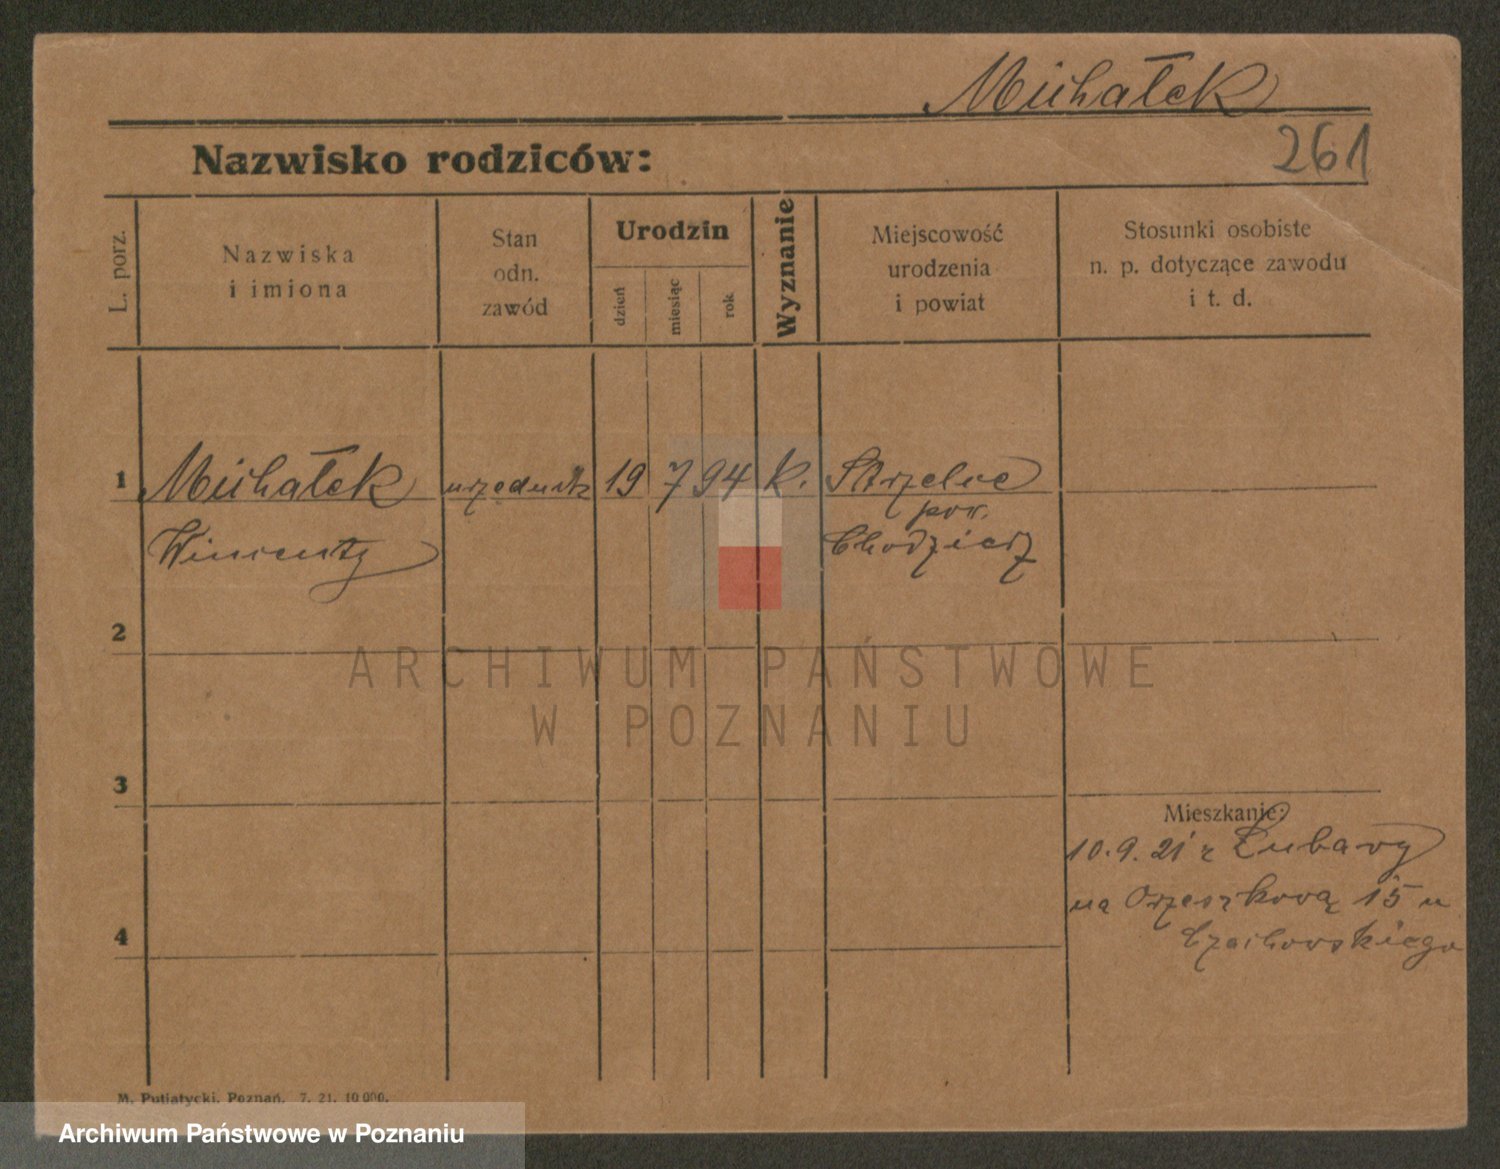 Michałek
261
Nazwisko rodziców:
L. porz.
Nazwiska
i imiona
Stan
odn.
zawód
Urodzin
dzień
miesiąc
rok
Wyznanie
Miejscowość
urodzenia
i powiat
Stosunki osobiste
n. p. dotyczące zawodu
i t. d.
1 Michałek urzędnik 19 7 94 k. Strzelce
pow.
Wincenty Chodzież
2
ARCHIWUM PAŃSTWOWE
W POZNANIU
3
Mieszkanie:
10.9.21 z Lubawy
na Orzeszkową 15 u
4
Czachowskiego
M. Putiatycki, Poznań. 7. 21. 10 000.
Archiwum Państwowe w Poznaniu